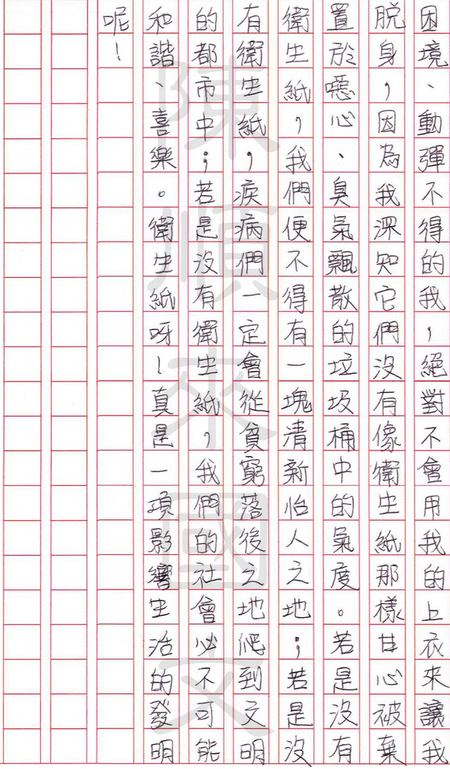 困境、動彈不得的我，絕對不會用我的上衣來讓我
脫身，因為我深知它們沒有像衛生紙那樣甘心被棄
置於噁心、臭氣飄散的垃圾桶中的氣度。若是沒有
衛生紙，我們便不得有一塊清新怡人之地；若是沒
有衛生紙，疾病們一定會從貧窮落後之地爬到文明
的都市中；若是沒有衛生紙，我們的社會必不可能
和諧、喜樂。衛生紙呀！真是一項影響生活的發明
呢！
陳順來國文